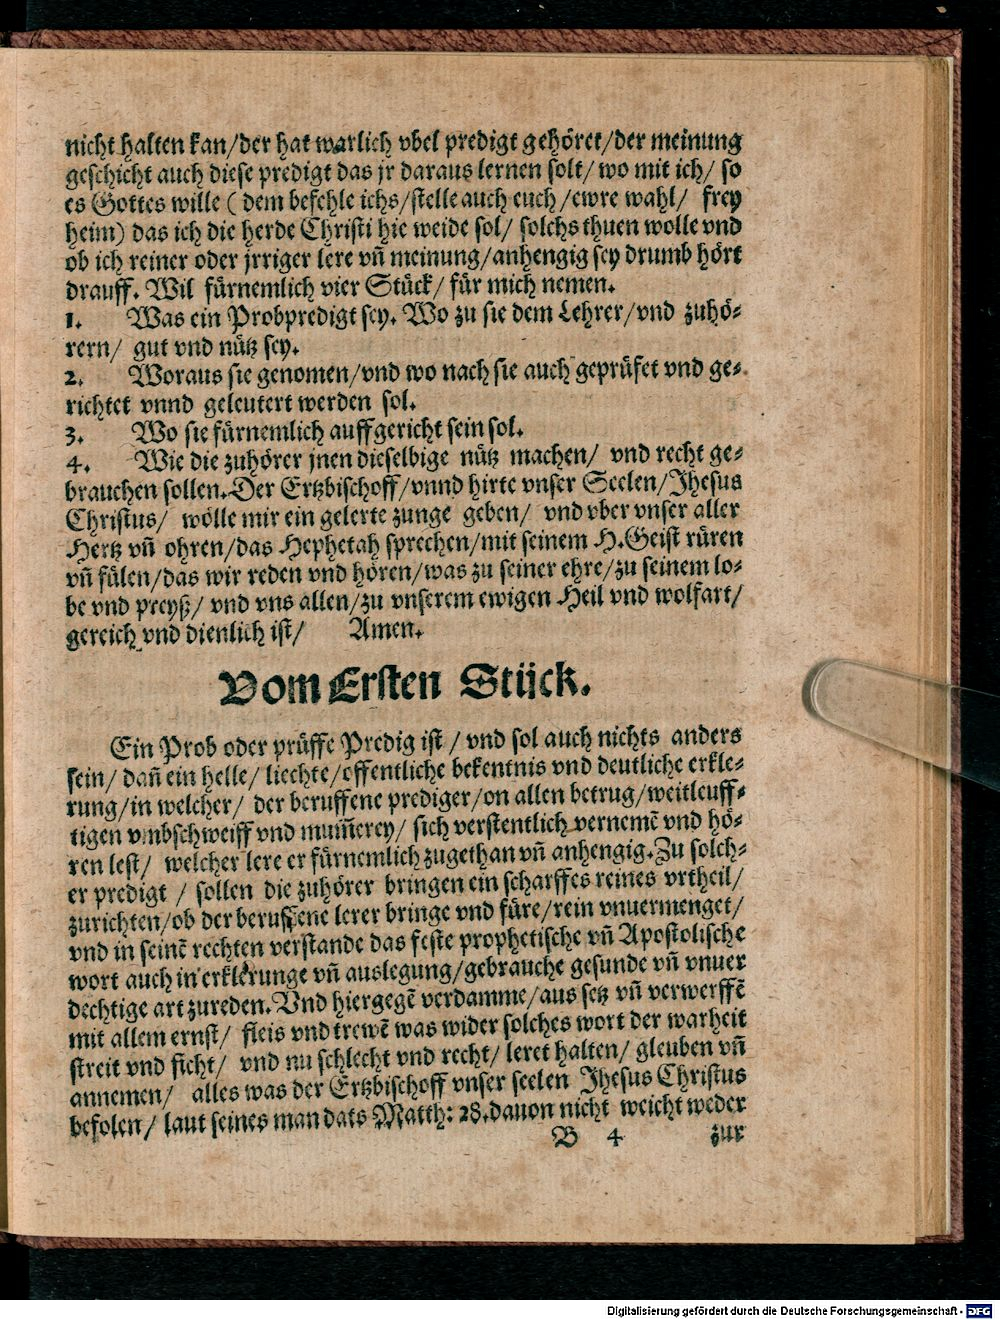 nicht halten kan/der hat warlich vbel predigt gehöret/der meinung
geschicht auch diese predigt das jr daraus lernen solt/ wo mit ich/ so
es Gottes wille ( dem befehle ichs/stelle auch euch /ewre wahl/ frey
heim) das ich die herde Christi hie weide sol/ solchs thuen wolle vnd
ob ich reiner oder jrriger lere vn̄ meinung/anhengig sey drumb hört
drauff. Wil fürnemlich vier Stück/ für mich nemen.
1. Was ein Probpredigt sey. Wo zu sie dem Lehrer/vnd zuhö⸗
rern/ gut vnd nütz sey.
2. Woraus sie genomen/vnd wo nach sie auch geprüfet vnd ge⸗
richtet vnnd geleutert werden sol.
3. Wo sie fürnemlich auffgericht sein sol.
4. Wie die zuhörer jnen dieselbige nütz machen/ vnd recht ge⸗
brauchen sollen.Der Ertzbischoff/vnnd hirte vnser Seelen/Jhesus
Christus/ wölle mir ein gelerte zunge geben/ vnd vber vnser aller
Hertz vn̄ ohren/das Hephetah sprechen/mit seinem H.Geist rüren
vn̄ fülen/das wir reden vnd hören/was zu seiner ehre/zu seinem lo⸗
be vnd preyß/ vnd vns allen/zu vnserem ewigen Heil vnd wolfart/
gereich vnd dienlich ist/ Amen.
Vom Ersten Stück.
Ein Prob oder prüffe Predig ist / vnd sol auch nichts anders
sein/ dan̄ ein helle/ liechte/offentliche bekentnis vnd deutliche erkle⸗
rung/in welcher/ der beruffene prediger/on allen betrug/weitleuff⸗
tigen vmbschweiff vnd mum̄erey/ sich verstentlich vernemē vnd hö⸗
ren lest/ welcher lere er fürnemlich zugethan vn̄ anhengig.Zu solch⸗
er predigt / sollen die zuhörer bringen ein scharffes reines vrtheil/
zurichten/ob der beruffene lerer bringe vnd füre/rein vnuermenget/
vnd in seinē rechten verstande das feste prophetische vn̄ Apostolische
wort auch in erklerunge vn̄ auslegung/gebrauche gesunde vn̄ vnuer
dechtige art zureden.Vnd hiergegē verdamme/aus setz vn̄ verwerffē
mit allem ernst/ fleis vnd trewē was wider solches wort der warheit
streit vnd ficht/ vnd nu schlecht vnd recht/ leret halten/ gleuben vn̄
annemen/ alles was der Ertzbischoff vnser seelen Jhesus Christus
befolen/ laut seines man dats Matth: 28.dauon nicht weicht weder
B 4 zur
Digitalisierung gefördert durch die Deutsche Forschungsgemeinschaft - DFG